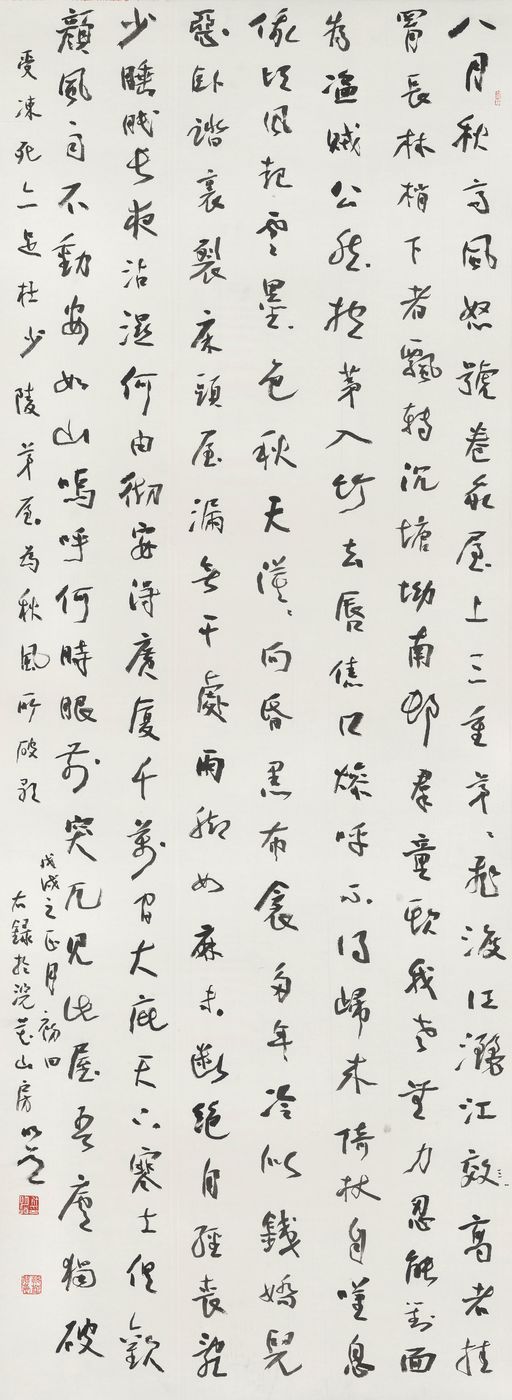 八月秋高風怒號卷我屋上三重茅〻飛渡江灑江效高者挂
罥長林梢下者飄轉沉塘坳南邨群童欺我老無力忍能對面
為盜賊公然抱茅入竹去唇焦口燥呼不得歸來倚杖自嘆息
俄頃風起雲墨色秋天漠〻向昏黑布衾多年冷似鐵嬌兒
惡臥踏裏裂床頭屋漏無干處雨腳如麻未斷絕自經喪亂
少睡眠長夜沾濕何由徹安得廣廈千萬間大庇天下寒士俱歡
顏風雨不動安如山嗚呼何時眼前突兀見此屋吾廬獨破
受凍死亦足杜少陵茅屋為秋風所破歌
戊戌之正月初
右錄於浣花山房